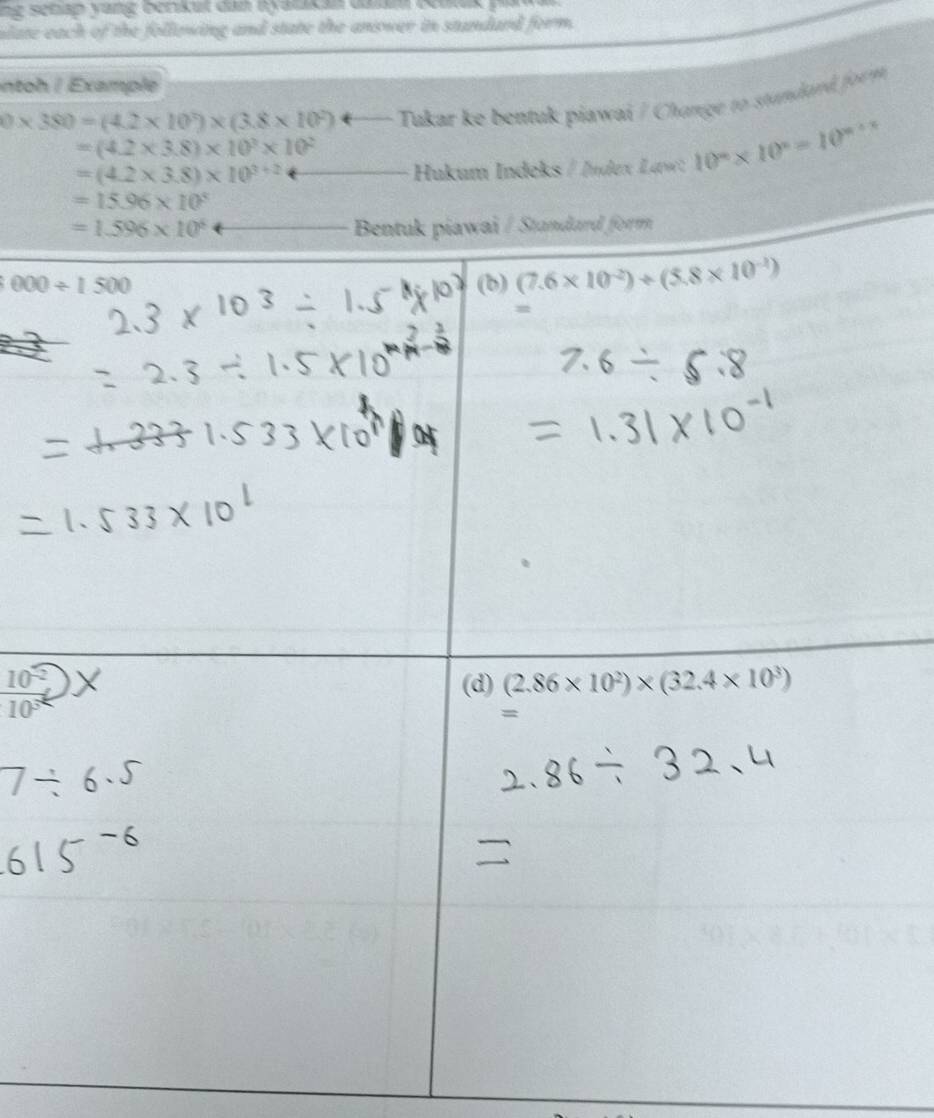 ng setiap yang berikut dan
each of the following and state the answer in standard form.
ntoh / Example
0 × 380 = (4.2 × 10³) × (3.8 × 10²) ← Tukar ke bentuk piawai / Change to standard form
= (4.2 × 3.8) × 10³ × 10²
= (4.2 × 3.8) × 10³⁺² ← Hukum Indeks / Index Law: 10ᵐ × 10ⁿ = 10ᵐ⁺ⁿ
= 15.96 × 10⁵
= 1.596 × 10⁶ ← Bentuk piawai / Standard form
000 ÷ 1 500
2.3 × 10³ ÷ 1.5 × 10³
= 2.3 ÷ 1.5 × 10
= 1.533 × 10
= 1.533 × 10¹
(b) (7.6 × 10⁻²) ÷ (5.8 × 10⁻¹)
=
7.6 ÷ 5.8
= 1.31 × 10⁻¹
10⁻²) ×
10³
7 ÷ 6.5
615⁻⁶
(d) (2.86 × 10²) × (32.4 × 10³)
=
2.86 ÷ 32.4
=